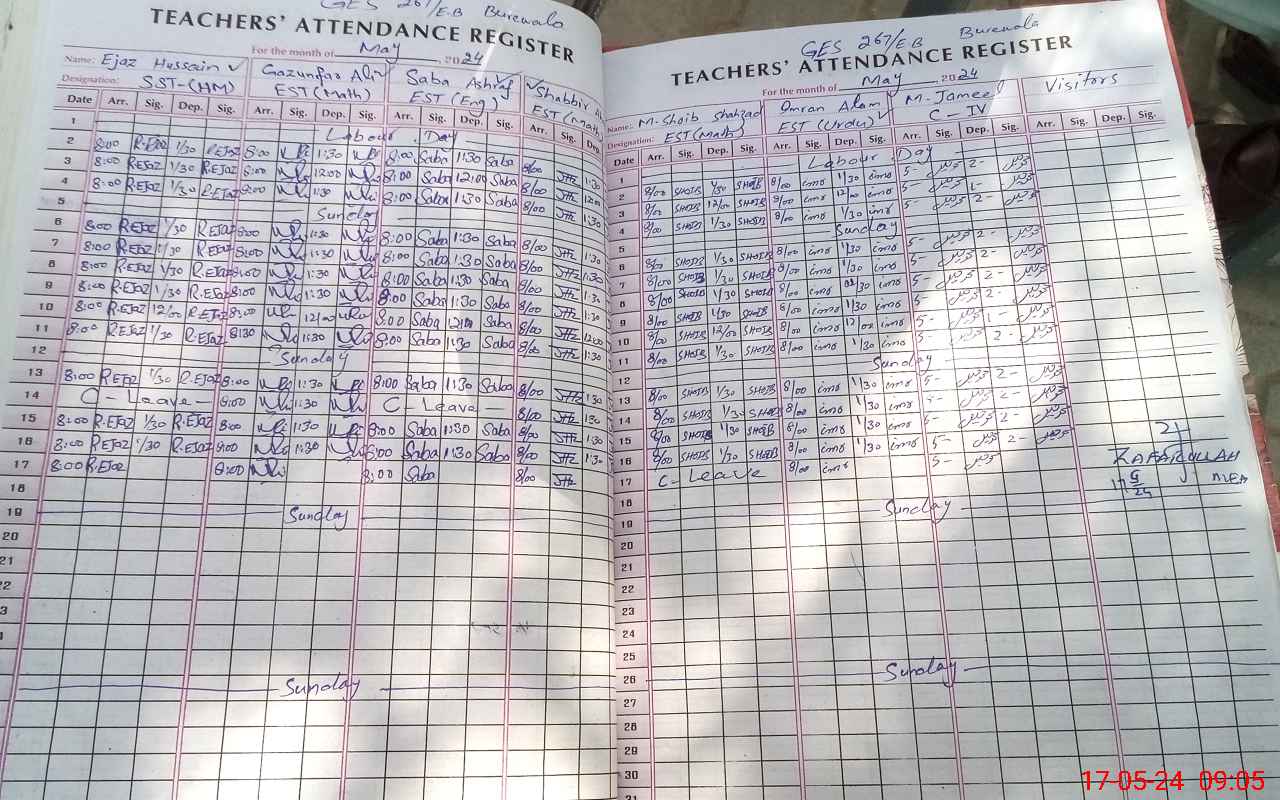 GES 267/E.B Burewala
TEACHERS' ATTENDANCE REGISTER
For the month of May 2024
Name: Ejaz Hussain Gazunfar Ali Saba Ashraf Shabbir
Designation: SST-(HM) EST(Math) EST(Eng) EST(Math
Date Arr. Sig. Dep. Sig. Arr. Sig. Dep. Sig. Arr. Sig. Dep. Sig. Arr. Sig. Dep
1 Labour Day
2 8:00 R.EJaz 1/30 R.EJaz 8:00 1:30 8:00 Saba 1:30 Saba 8/00 1:30
3 8:00 R.EJaz 1/30 R.EJaz 8:00 12:00 8:00 Saba 12:00 Saba 8/00 12:00
4 8:00 R.EJaz 1/30 R.EJaz 8:00 1:30 8:00 Saba 1:30 Saba 8/00 1:30
5 Sunday
6 8:00 R.EJaz 1/30 R.EJaz 8:00 1:30 8:00 Saba 1:30 Saba 8/00 1:30
7 8:00 R.EJaz 1/30 R.EJaz 8:00 1:30 8:00 Saba 1:30 Saba 8/00 1:30
8 8:00 R.EJaz 1/30 R.EJaz 8:00 1:30 8:00 Saba 1:30 Saba 8/00 1:30
9 8:00 R.EJaz 1/30 R.EJaz 8:00 1:30 8:00 Saba 1:30 Saba 8/00 1:30
10 8:00 R.EJaz 12/00 R.EJaz 8:00 12/00 8:00 Saba 12:00 Saba 8/00 12:00
11 8:00 R.EJaz 1/30 R.EJaz 8:30 1:30 8:00 Saba 1:30 Saba 8/00 1:30
12 Sunday
13 8:00 R.EJaz 1/30 R.EJaz 8:00 1:30 8:00 Saba 1:30 Saba 8/00 1:30
14 C-Leave- 8:00 1:30 C-Leave- 8/00 1:30
15 8:00 R.EJaz 1/30 R.EJaz 8:00 1:30 8:00 Saba 1:30 Saba 8/00 1:30
16 8:00 R.EJaz 1/30 R.EJaz 8:00 1:30 8:00 Saba 1:30 Saba 8/00 1:30
17 8:00 R.EJaz 8:00 8:00 Saba 8/00
18
19 Sunday
20
21
22
3
4
Sunday
GES 267/EB Burewala
TEACHERS' ATTENDANCE REGISTER
For the month of May 2024
Name: M.Shoib Shahzad Imran Alam M-Jameel Visitors
Designation: EST(Math) EST(Urdu) C-IV
Date Arr. Sig. Dep. Sig. Arr. Sig. Dep. Sig. Arr. Sig. Dep. Sig. Arr. Sig. Dep. Sig.
1 Labour Day
2 8/00 SHOIB 1/30 SHOIB 8/00 imr 1/30 imr 5- 2-
3 8/00 SHOIB 12/00 SHOIB 8/00 imr 12/00 imr 5- 1-
4 8/00 SHOIB 1/30 SHOIB 8/00 imr 1/30 imr 5- 2-
5 Sunday
6 8/00 SHOIB 1/30 SHOIB 8/00 imr 1/30 imr 5- 2-
7 8/00 SHOIB 1/30 SHOIB 8/00 imr 1/30 imr 5- 2-
8 8/00 SHOIB 1/30 SHOIB 8/00 imr 1/30 imr 5- 2-
9 8/00 SHOIB 1/30 SHOIB 8/00 imr 1/30 imr 5- 2-
10 8/00 SHOIB 12/00 SHOIB 8/00 imr 12/00 imr 5- 1-
11 8/00 SHOIB 1/30 SHOIB 8/00 imr 1/30 imr 5- 2-
12 Sunday
13 8/00 SHOIB 1/30 SHOIB 8/00 imr 1/30 imr 5- 2-
14 8/00 SHOIB 1/30 SHOIB 8/00 imr 1/30 imr 5- 2-
15 8/00 SHOIB 1/30 SHOIB 8/00 imr 1/30 imr 5- 2-
16 8/00 SHOIB 1/30 SHOIB 8/00 imr 1/30 imr 5- 2-
17 C-Leave 8/00 imr 5-
18
19 Sunday
20
21
22
23
24
25
26 Sunday
27
28
29
30
31
17-05-24 09:05